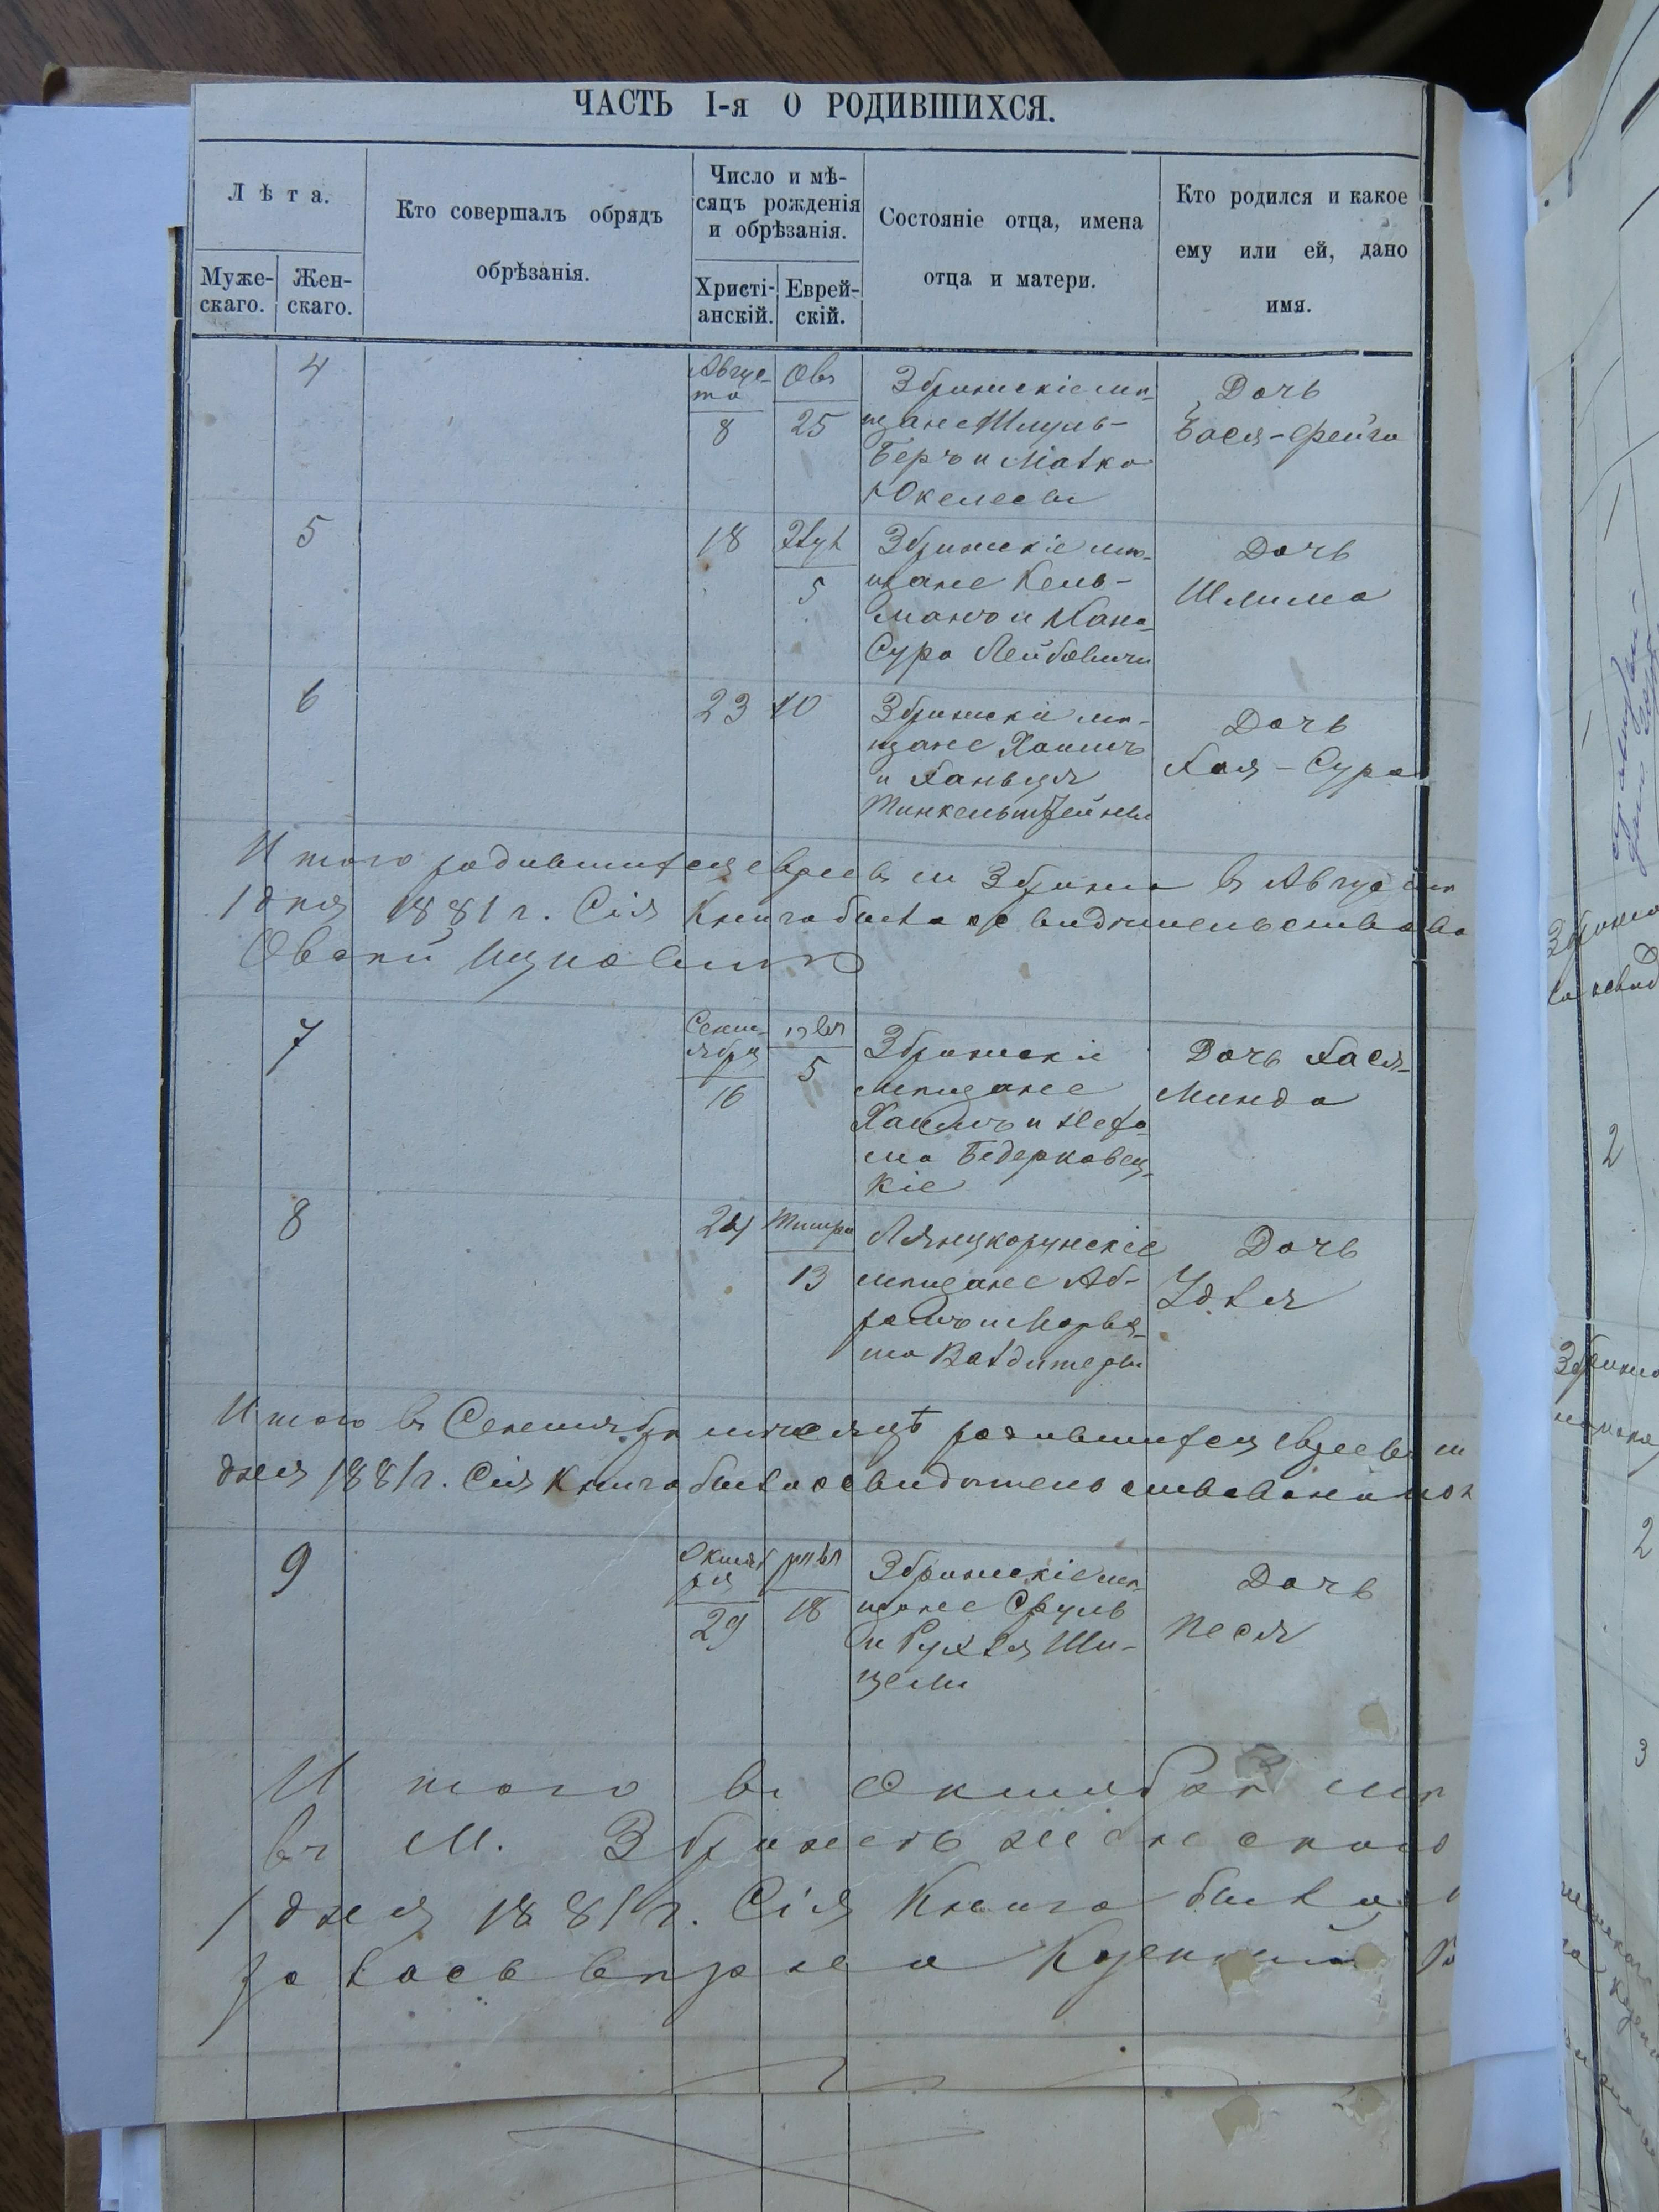 ЧАСТЬ I-я О РОДИВШИХСЯ.
Лѣта.
Муже-
скаго.
Жен-
скаго.
Кто совершалъ обрядъ
обрѣзанія.
Число и мѣ-
сяцъ рожденія
и обрѣзанія.
Христі-
анскій.
Еврей-
скій.
Состояніе отца, имена
отца и матери.
Кто родился и какое
ему или ей, дано
имя.
4
Авгус-
та
8
Овъ
25
Збрижскіе мѣ-
щане Шмуль-
Беръ и Малка
Юкелесы
Дочь
Бася-Фейга
5
18
Элул
5
Збрижскіе мѣ-
щане Кель-
манъ и Хана-
Сура Лейбовичи
Дочь
Шлима
6
23
10
Збрижскіе мѣ-
щане Хаимъ
и Ханьця
Финкельштейны
Дочь
Хая-Сура
Итого родившихся евреевъ м Збрижа въ Августѣ
1 дня 1881 г. Сія Книга была освидѣтельствова
7
Сент-
ября
16
5
Збрижскіе
мѣщане
Хаимъ и Неха-
ма Бедерковец-
кіе
Дочь Хася-
Минда
8
24
Тишри
13
Лянцкорунскіе
мѣщане Аб-
рамъ и Марья-
ма Валдитеры
Дочь
Удля
Итого въ Сентябрѣ мѣсяцѣ родившихся евреевъ м
дня 1881 г. Сія Книга была освидѣтельствована
9
Октяб
ря
29
18
Збрижскіе мѣ-
щане Сруль
и Рухля Ши-
Дочь
Песя
Итого въ Октябрѣ мѣ
въ М. Збрижѣ женскаго
1 дня 1881 г. Сія Книга была